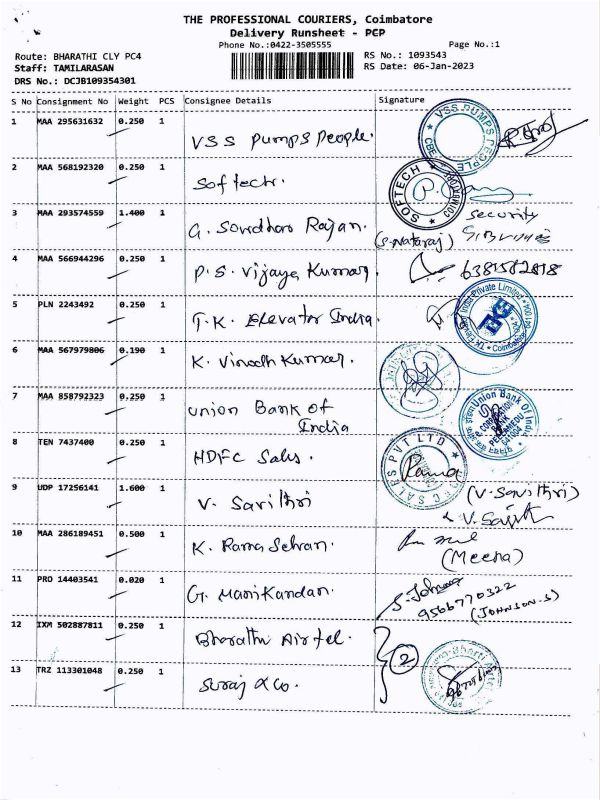 THE PROFESSIONAL COURIERS, Coimbatore
Delivery Runsheet - PCP
Phone No.:0422-3505555
Page No.:1
Route: BHARATHI CLY PC4
RS No.: 1093543
Staff: TAMILARASAN
RS Date: 06-Jan-2023
DRS No.: DCJB109354301
S No Consignment No Weight PCS Consignee Details Signature
1 MAA 295631632 0.250 1 VSS Pumps People.
VSS PUMPS PEOPLE
2 MAA 568192320 0.250 1 Softech.
SOFTECH
3 MAA 293574559 1.400 1 G. Sowdhara Rajan.
(S.Nataraj) Security
4 MAA 566944296 0.250 1 P. S. Vijaya Kumar.
6381582818
5 PLN 2243492 0.250 1 T.K. Elevator India.
TK Elevator India Private Limited
6 MAA 567979806 0.190 1 K. Vinodh Kumar.
7 MAA 858792323 0.250 1 Union Bank of
India
Union Bank Of India
8 TEN 7437400 0.250 1 HDFC Sales.
SALES PVT LTD
Rama
9 UDP 17256141 1.600 1 V. Savithri
(V. Savithri)
10 MAA 286189451 0.500 1 K. Rama Selvan.
(Meena)
11 PRO 14403541 0.020 1 G. Manikandan.
S. Johnson
9566770322
(JOHNSON.S)
12 IXM 502887811 0.250 1 Bharathi Airtel.
2
13 TRZ 113301048 0.250 1 Suraj & Co.